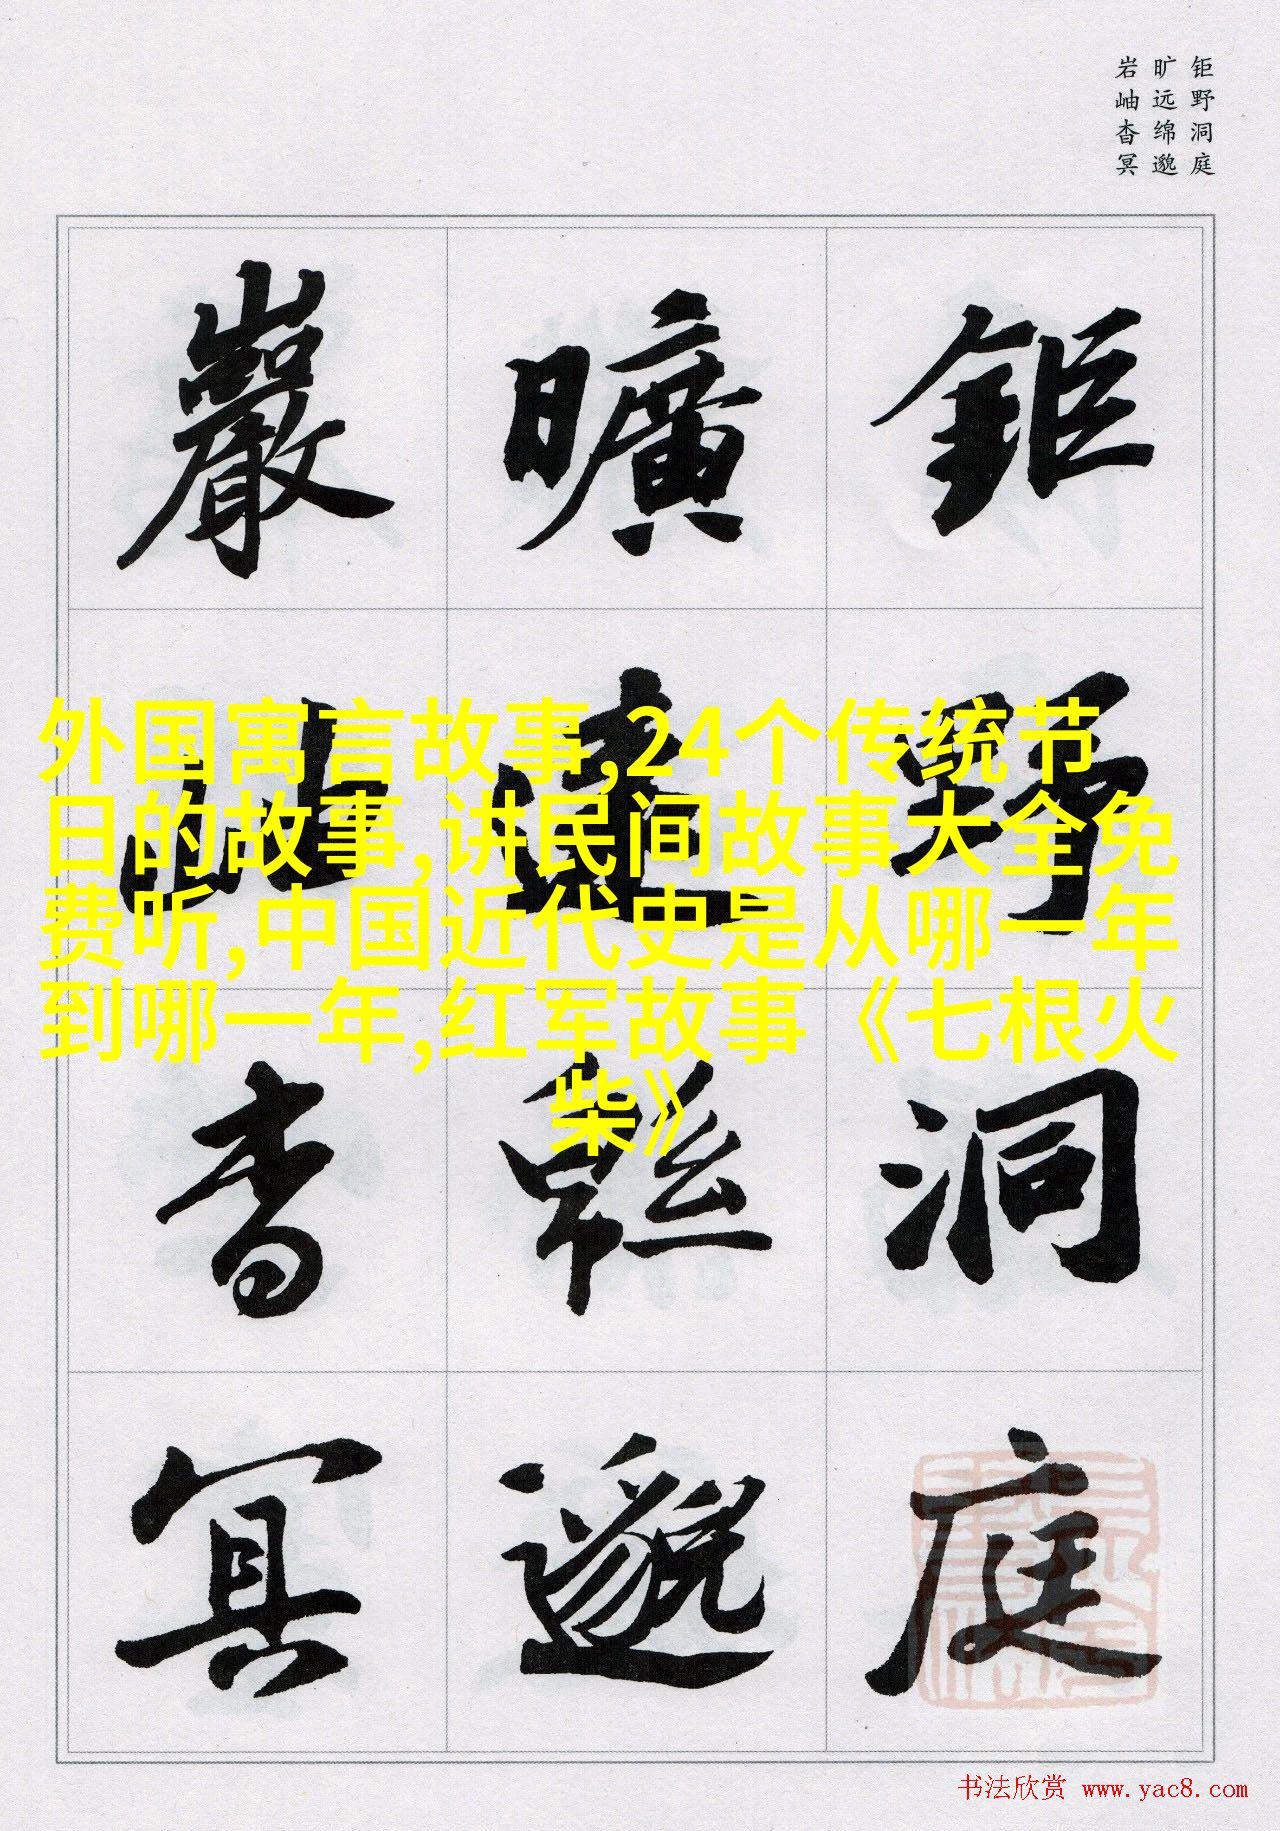 钜野洞庭
旷远绵邈
岩岫杳冥
鉅野洞庭
曠遠緜邈
巖岫杳冥
外国寓言故事,24个传统节
日的故事,讲民间故事大全免
费听,中国近代史是从哪一年
到哪一年,红军故事《七根火
柴》
书法欣赏 www.yac8.com